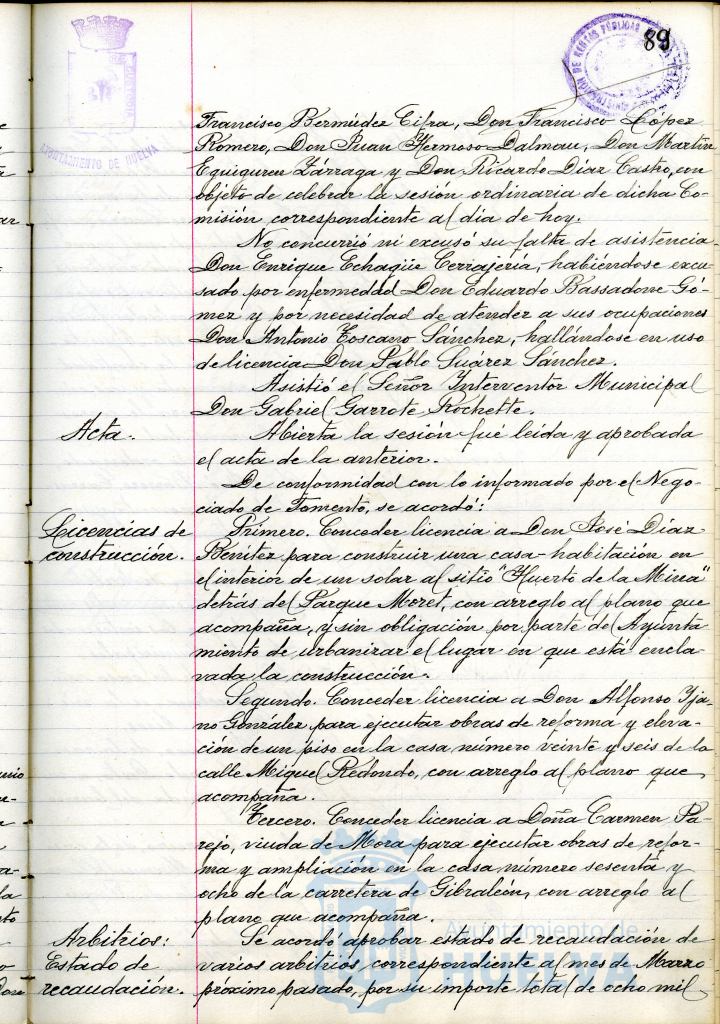 89
AYUNTAMIENTO DE HUELVA
Francisco Bermúdez Cifra, Don Francisco López
Romero, Don Juan Hermoso Dalmau, Don Martín
Eguiguren Zárraga y Don Ricardo Díaz Castro, con
objeto de celebrar la sesión ordinaria de dicha Co-
misión correspondiente al día de hoy.
No concurrió ni excusó su falta de asistencia
Don Enrique Echagüe Cerrajería, habiéndose excu-
sado por enfermedad Don Eduardo Bassadone Gó-
mez y por necesidad de atender a sus ocupaciones
Don Antonio Toscano Sánchez, hallándose en uso
de licencia Don Pablo Suárez Sánchez.
Asistió el Señor Interventor Municipal
Don Gabriel Garrote Rochette.
Acta.
Abierta la sesión fué leída y aprobada
el acta de la anterior.
De conformidad con lo informado por el Nego-
ciado de Fomento, se acordó:
Licencias de
construcción.
Primero. Conceder licencia a Don José Díaz
Benítez para construir una casa-habitación en
el interior de un solar al sitio "Huerto de la Mina"
detrás del Parque Moret, con arreglo al plano que
acompaña, y sin obligación por parte del Ayunta
miento de urbanizar el lugar en que está encla-
vada la construcción.
Segundo. Conceder licencia a Don Alfonso Yja-
no González para ejecutar obras de reforma y eleva-
ción de un piso en la casa número veinte y seis de la
calle Miguel Redondo, con arreglo al plano que
acompaña.
Tercero. Conceder licencia a Doña Carmen Pa-
rejo, viuda de Mora para ejecutar obras de refor-
ma y ampliación en la casa número sesenta y
ocho de la carretera de Gibraleón, con arreglo al
plano que acompaña.
Arbitrios:
Estado de
recaudación.
Se acordó aprobar estado de recaudación de
varios arbitrios, correspondiente al mes de Marzo
próximo pasado, por su importe total de ocho mil
Ayuntamiento de
HUELVA